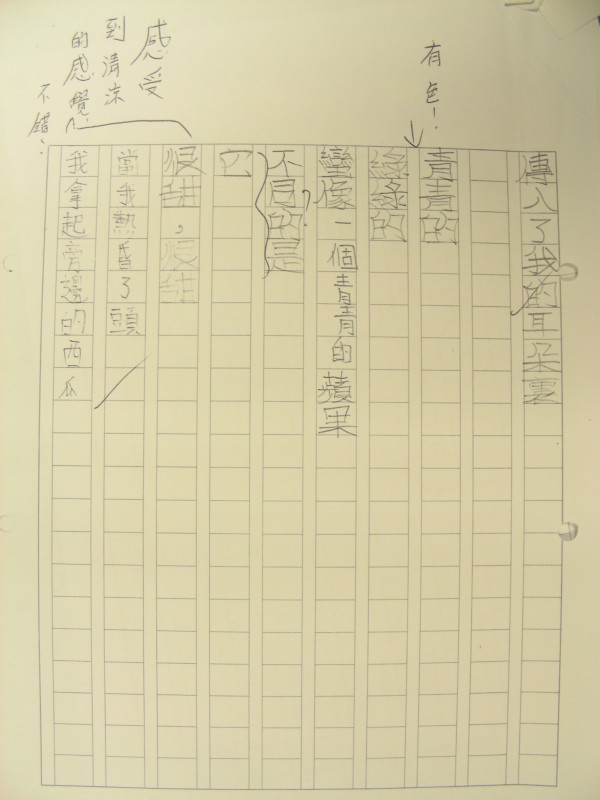 有色！
傳入了我的耳朵裏
青青的
綠綠的
蠻像一個青青的蘋果
不同的是
它
很甜，很甜
當我熱昏了頭
我拿起旁邊的西瓜
感受
到清涼
的感覺，
不錯！